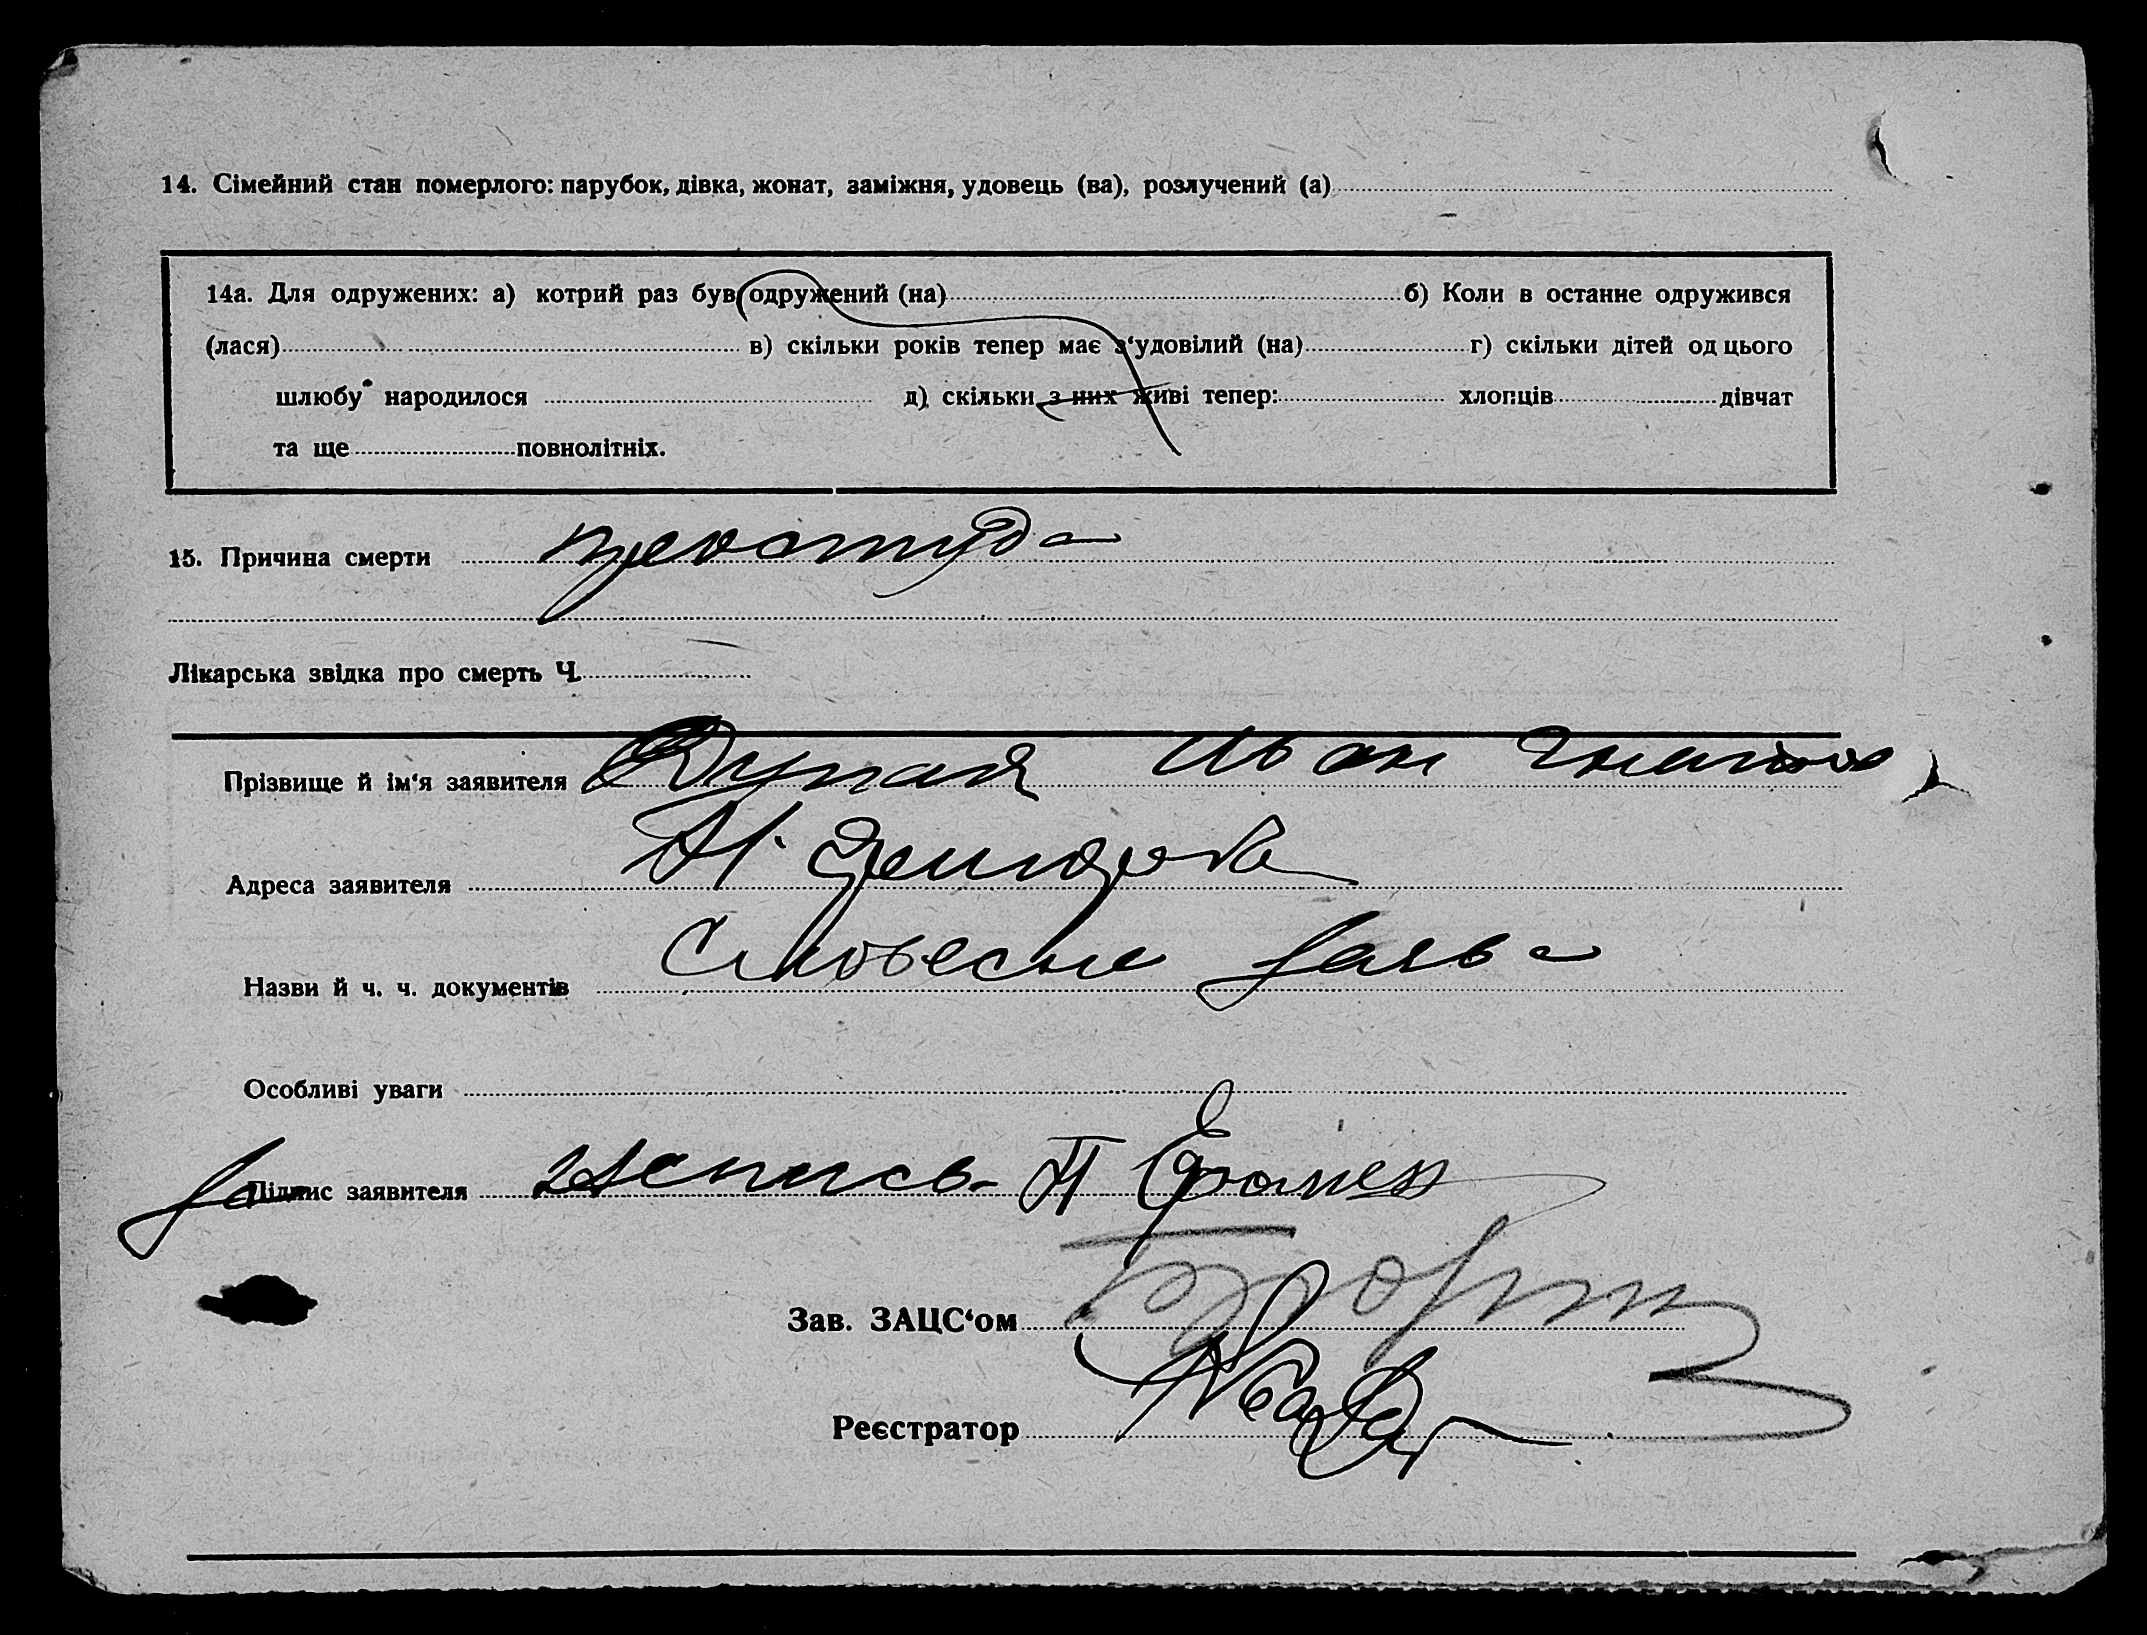 14. Сімейний стан померлого: парубок, дівка, жонат, заміжня, удовець (ва), розлучений (а)
14а. Для одружених: а) котрий раз був одружений (на) б) Коли в останне одружився
(лася) в) скільки років тепер має з‘удовілий (на) г) скільки дітей од цього
шлюбу народилося д) скільки з них живі тепер: хлопців дівчат
та ще повнолітніх.
15. Причина смерти простуда
Лікарська звідка про смерть Ч.
Прізвище й ім‘я заявителя Іван
Адреса заявителя
Назви й ч. ч. документів Словесна заява
Особливі уваги
Підпис заявителя
Зав. ЗАЦС‘ом
Реєстратор